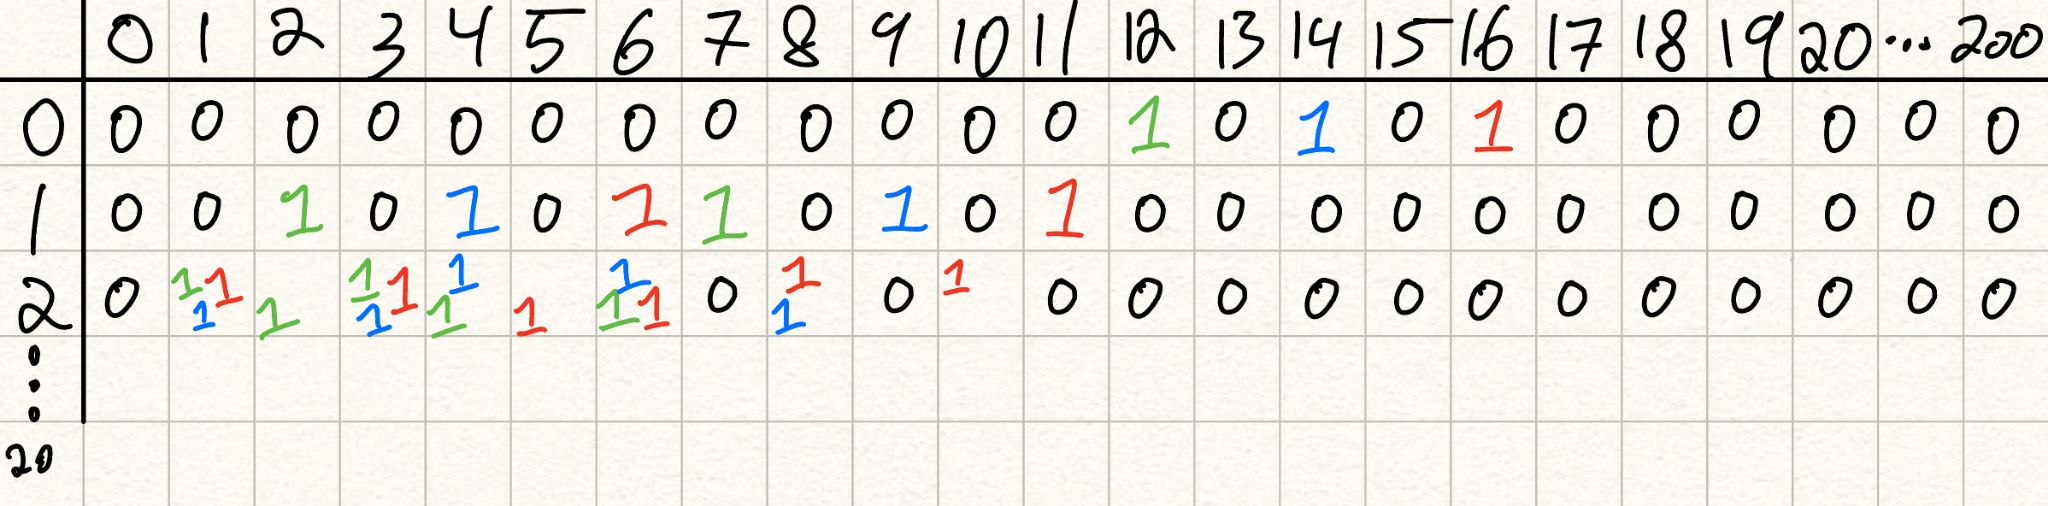 0 1 2 3 4 5 6 7 8 9 10 11 12 13 14 15 16 17 18 19 20 ... 200
0 0 0 0 0 0 0 0 0 0 0 0 0 1 0 1 0 1 0 0 0 0 0 0
1 0 0 1 0 1 0 1 1 0 1 0 1 0 0 0 0 0 0 0 0 0 0 0
2 0 111 1 111 11 1 111 0 11 0 1 0 0 0 0 0 0 0 0 0 0 0 0
⋮
20